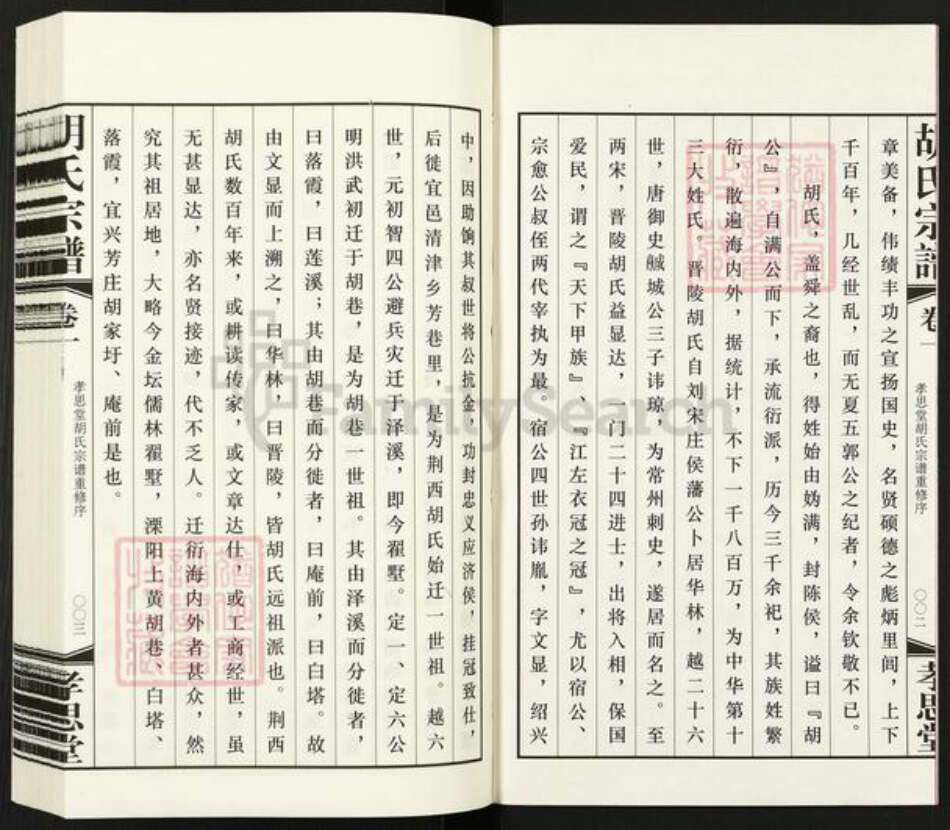 胡氏宗譜 卷一 孝思堂胡氏宗谱重修序 〇〇二 孝思堂
章美备，伟绩丰功之宣扬国史，名贤硕德之彪炳里闾，上下
千百年，几经世乱，而无夏五郭公之纪者，令余钦敬不已。
胡氏，盖舜之裔也，得姓始由妫满，封陈侯，谥曰『胡
公』，自满公而下，承流衍派，历今三千余祀，其族姓繁
衍，散遍海内外，据统计，不下一千八百万，为中华第十
三大姓氏。晋陵胡氏自刘宋庄侯藩公卜居华林，越二十六
世，唐御史鹹城公三子讳琼，为常州刺史，遂居而名之。至
两宋，晋陵胡氏益显达，一门二十四进士，出将入相，保国
爱民，谓之『天下甲族』、『江左衣冠之冠』，尤以宿公、
宗愈公叔侄两代宰执为最。宿公四世孙讳胤，字文显，绍兴
中，因助饷其叔世将公抗金，功封忠义应济侯，挂冠致仕，
后徙宜邑清津乡芳巷里，是为荆西胡氏始迁一世祖。越六
世，元初智四公避兵灾迁于泽溪，即今翟墅。定一、定六公
明洪武初迁于胡巷，是为胡巷一世祖。其由泽溪而分徙者，
曰落霞，曰莲溪；其由胡巷而分徙者，曰庵前，曰白塔。故
由文显而上溯之，曰华林，曰晋陵，皆胡氏远祖派也。荆西
胡氏数百年来，或耕读传家，或文章达仕，或工商经世，虽
无甚显达，亦名贤接迹，代不乏人。迁衍海内外者甚众，然
究其祖居地，大略今金坛儒林翟墅，溧阳上黄胡巷、白塔、
落霞，宜兴芳庄胡家圩、庵前是也。
胡氏宗譜 卷一 孝思堂胡氏宗谱重修序 〇〇三 孝思堂
FamilySearch